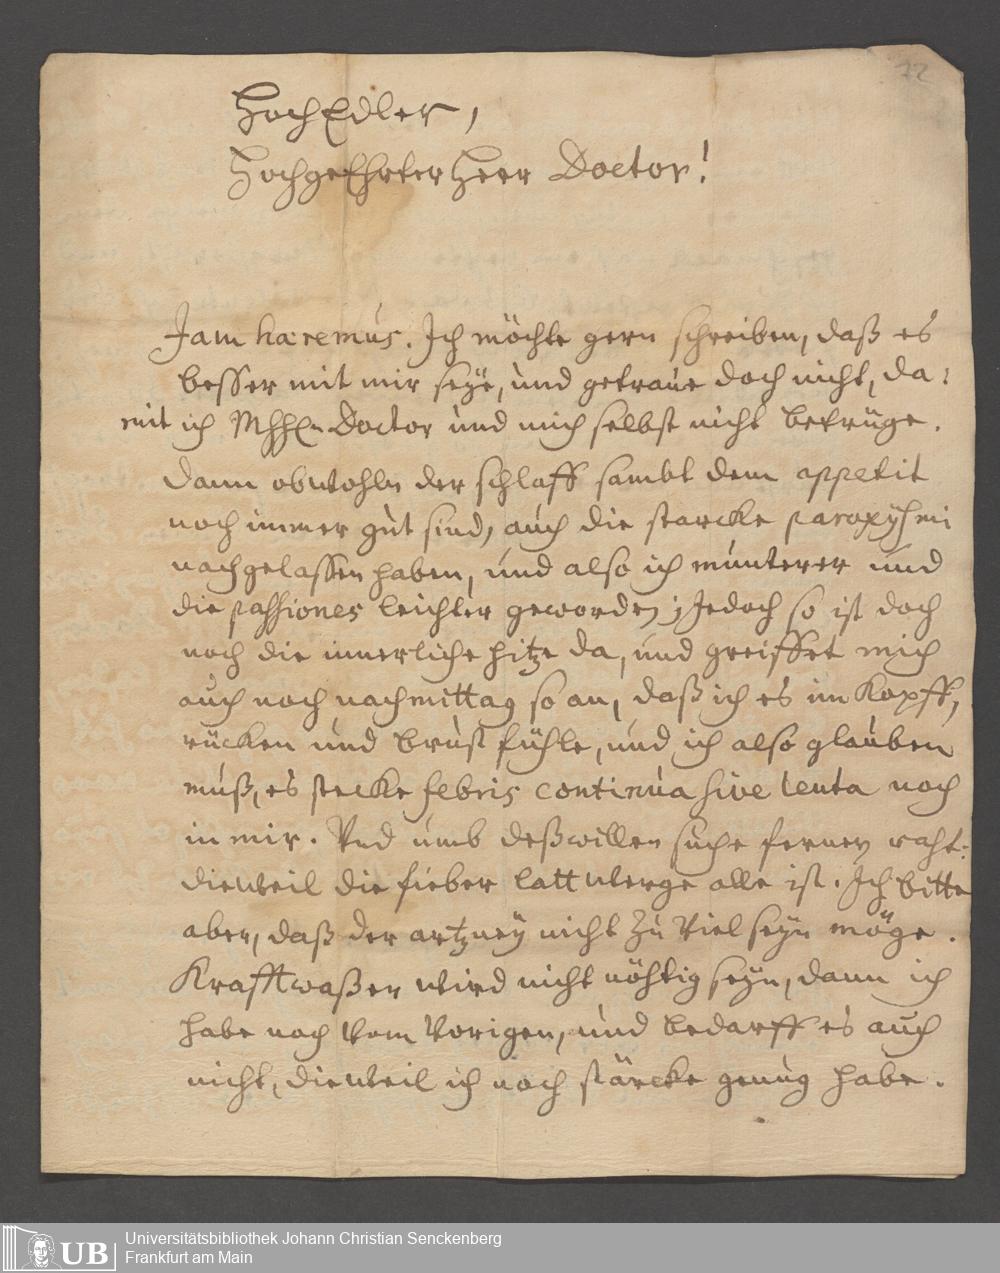 72
HochEdler,
HochgeEhrter Herr Doctor!
Jam haeremus. Ich möchte gern schreiben, daß es
besser mit mir seÿe, und getraue doch nicht, da-
mit ich MhhEn Doctor und mich selbst nicht betrüge.
Dann obwohln der schlaff sambt dem appetit
noch immer gut sind, auch die starcke paroxÿsmi
nachgelassen haben, und also ich munterer und
die passiones leichter geworden; Jedoch so ist doch
noch die innerliche hitze da, und greiffet mich
auch noch nachmittag so an, daß ich es im Kopff,
rücken und brust fühle, und ich also glauben
muß, es stecke febris continua sive lenta noch
in mir. Vnd umb deßwillen suche fernen raht:
dieweil die fieber lattwerge alle ist. Ich bitte
aber, daß der artzneÿ nicht zu viel seÿn möge.
Krafftwaßer wird nicht nöhtig seÿn, dann ich
habe noch vom vorigen, und bedarff es auch
nicht, dieweil ich noch stärcke genug habe.
UB
Universitätsbibliothek Johann Christian Senckenberg
Frankfurt am Main